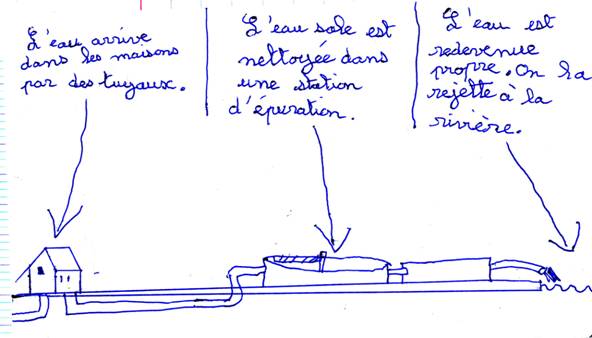 L'eau arrive
dans les maisons
par des tuyaux.
L'eau sale est
nettoyée dans
une station
d'épuration.
L'eau est
redevenue
propre. On la
rejette à la
rivière.